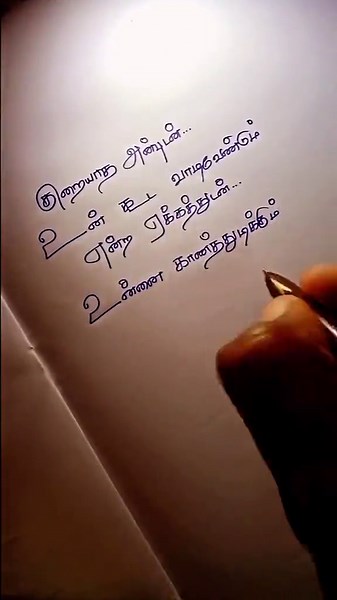 குறையாத அன்புடன்...
உன் கூட வாழவேண்டும்
என்ற ஏக்கத்துடன்...
உன்னை காணத்துடிக்கும்